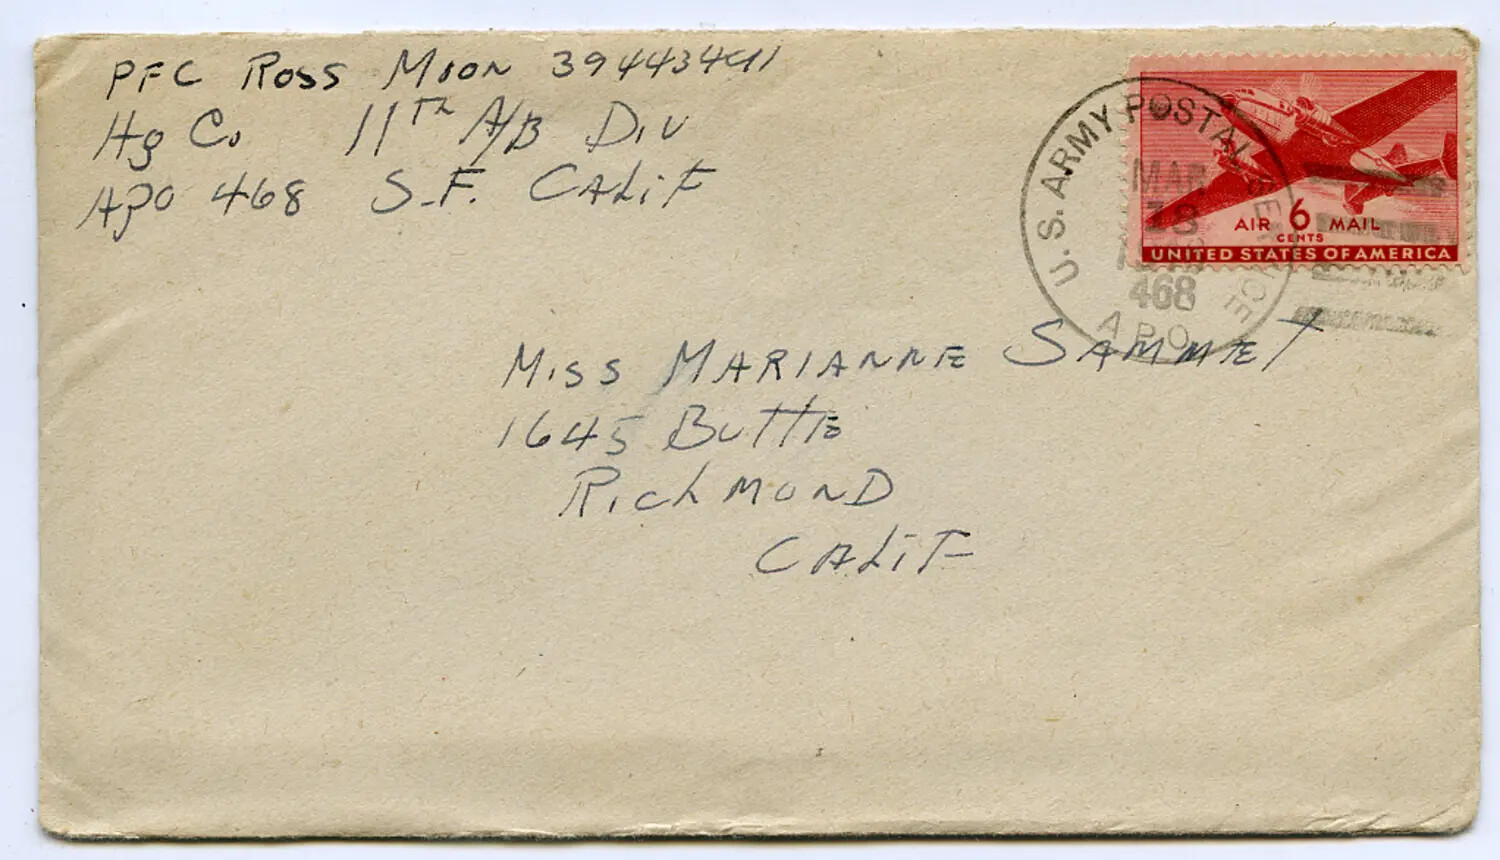 PFC Ross Moon 39443491
Hq Co 11th A/B Div
APO 468 S.F. Calif
U.S. ARMY POSTAL SERVICE
MAR
18
468
APO
AIR 6 MAIL
CENTS
UNITED STATES OF AMERICA
Miss Marianne Sammet
1645 Butte
Richmond
Calif